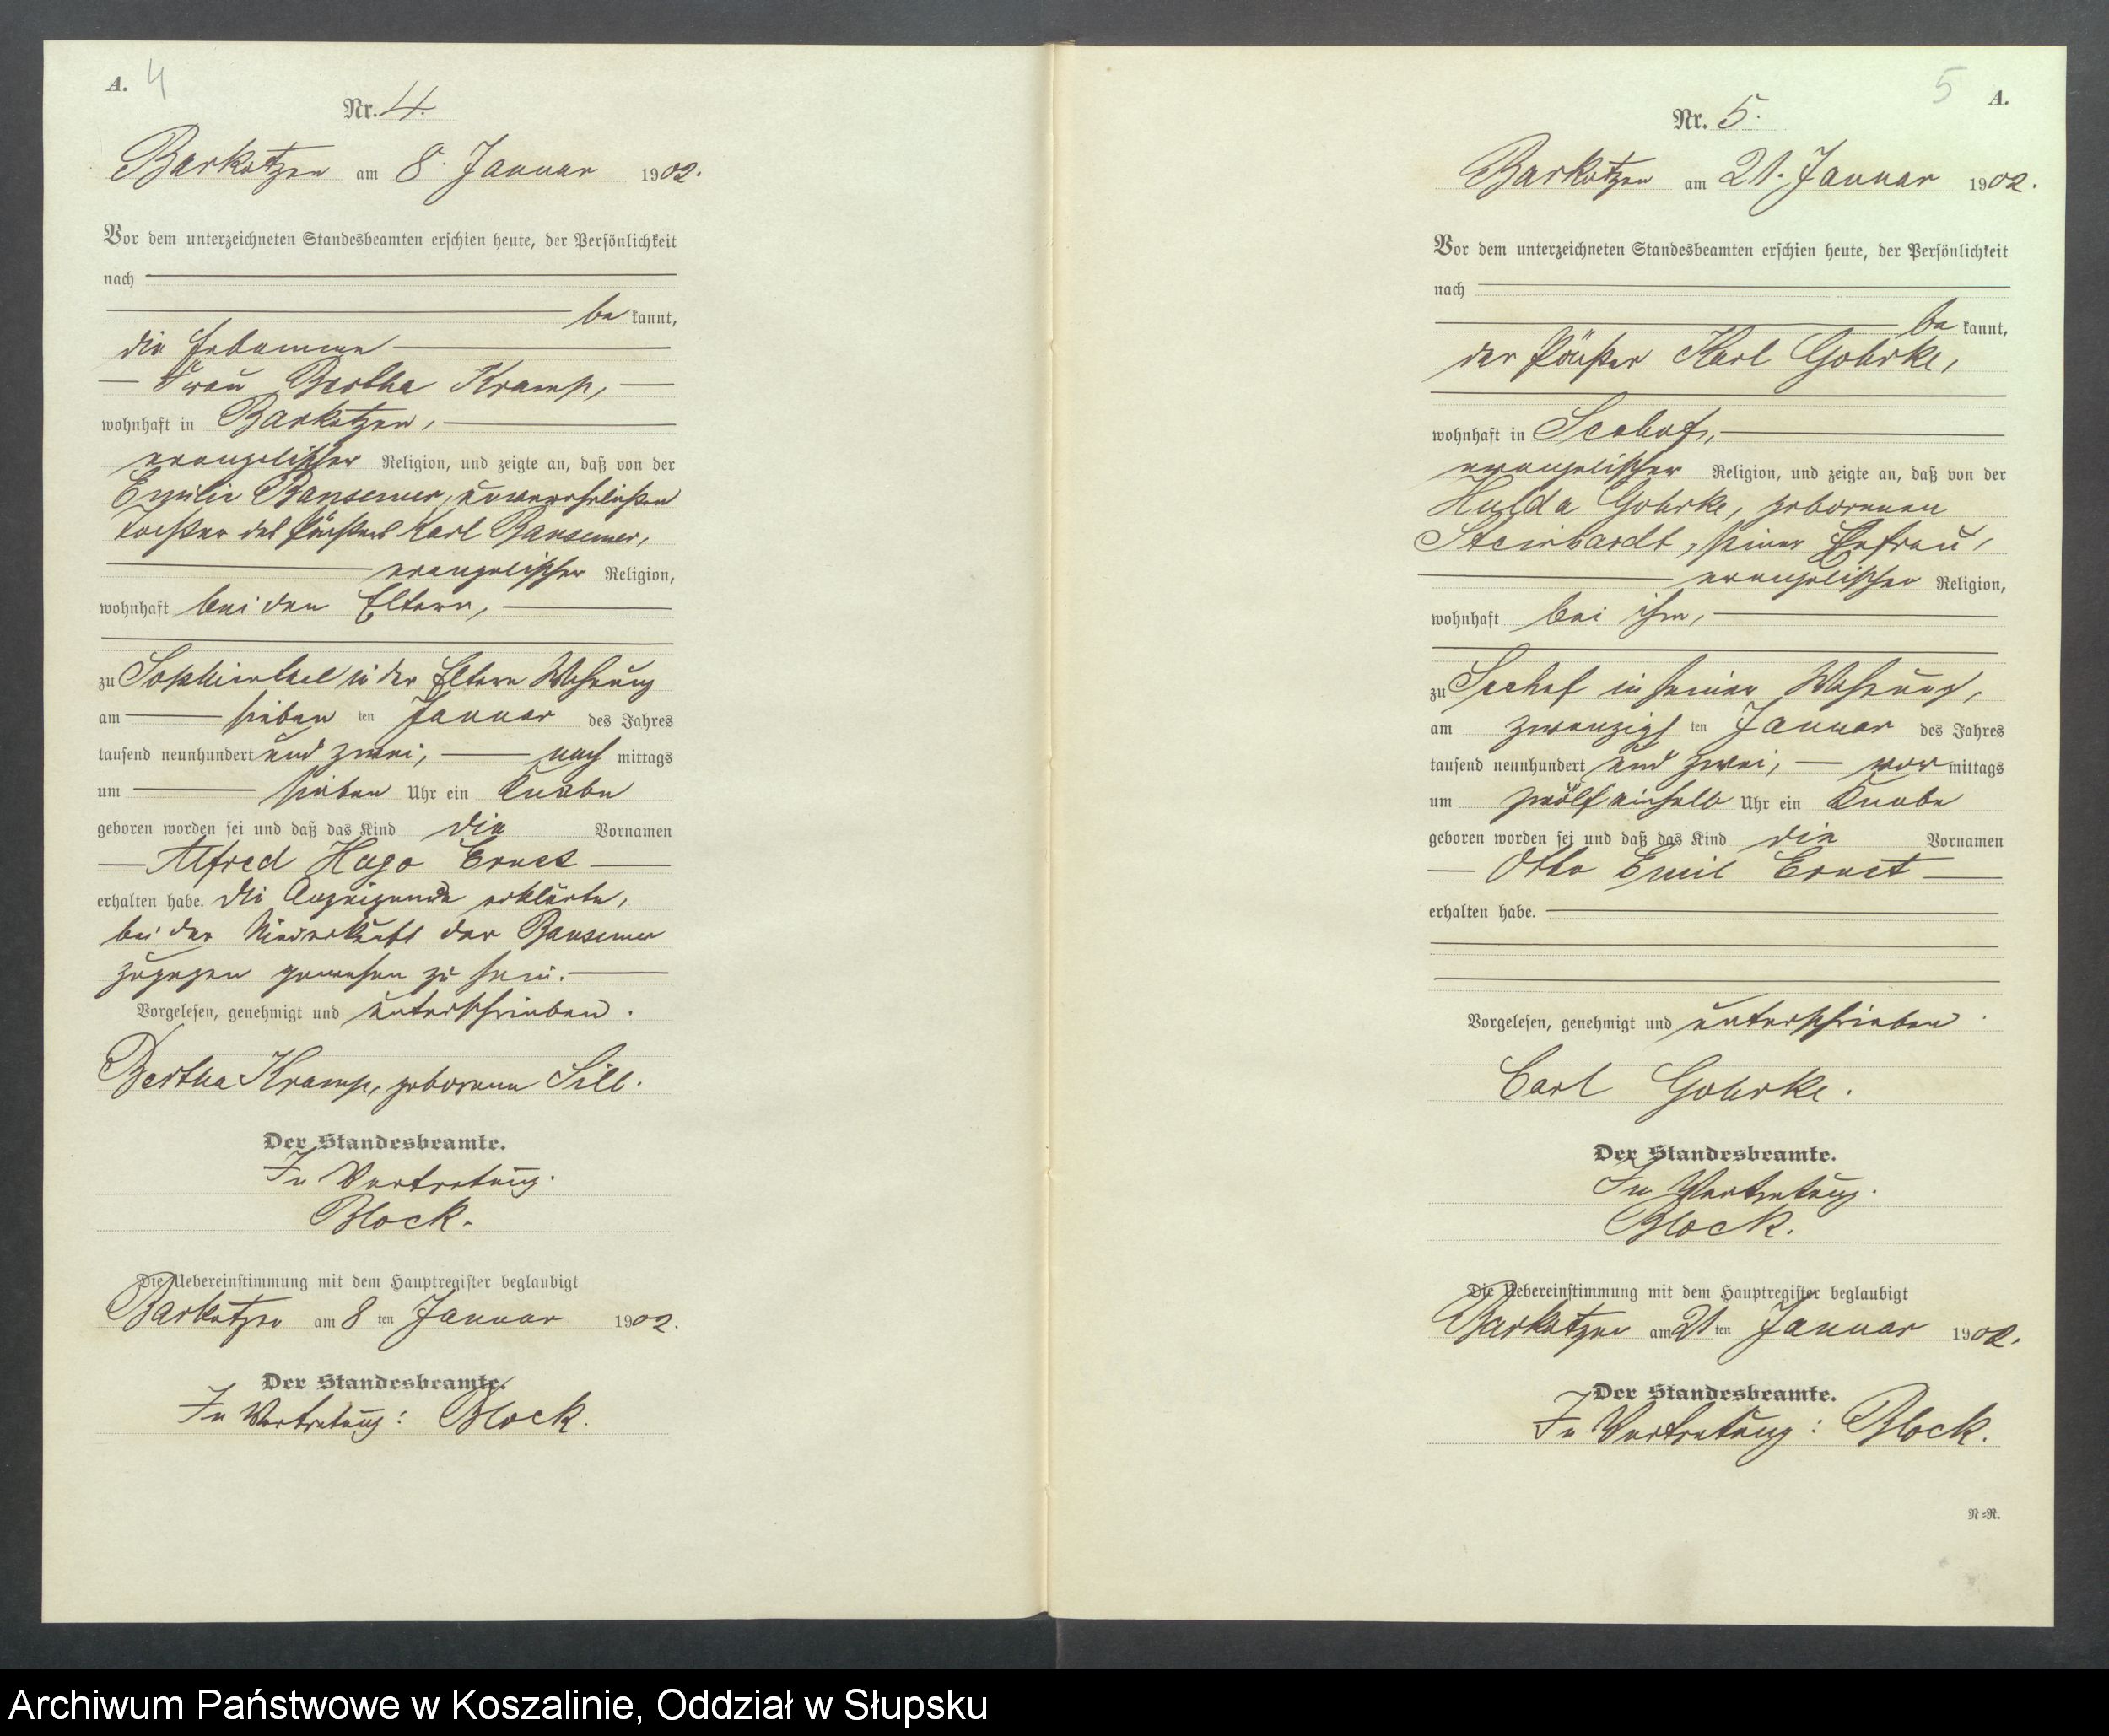 A. 4
Nr. 4.
Barkotzen am 8. Januar 1902.
Vor dem unterzeichneten Standesbeamten erschien heute, der Persönlichkeit
nach
be kannt,
die Hebamme
Frau Bertha Kramp,
wohnhaft in Barkotzen,
evangelischer Religion, und zeigte an, daß von der
Emilie Bansemer, unverehelichten
Tochter des Pächters Karl Bansemer,
evangelischer Religion,
wohnhaft bei den Eltern,
zu Sophienthal in der Eltern Wohnung
am sieben ten Januar des Jahres
tausend neunhundert und zwei, nach mittags
um sieben Uhr ein Knabe
geboren worden sei und daß das Kind die Vornamen
Alfred Hugo Ernst
erhalten habe. Die Anzeigende erklärte,
bei der Niederkunft der Bansemer
zugegen gewesen zu sein.
Vorgelesen, genehmigt und unterschrieben.
Bertha Kramp, geborene Sill.
Der Standesbeamte.
In Vertretung.
Block.
Die Uebereinstimmung mit dem Hauptregister beglaubigt
Barkotzen am 8 ten Januar 1902.
Der Standesbeamte.
In Vertretung: Block.
5 A.
Nr. 5.
Barkotzen am 21. Januar 1902.
Vor dem unterzeichneten Standesbeamten erschien heute, der Persönlichkeit
nach
be kannt,
der Pächter Karl Gohrke,
wohnhaft in Seehof,
evangelischer Religion, und zeigte an, daß von der
Hulda Gohrke, geborenen
Steinhardt, seiner Ehefrau,
evangelischer Religion,
wohnhaft bei ihm,
zu Seehof in seiner Wohnung,
am zwanzigs ten Januar des Jahres
tausend neunhundert und zwei, vor mittags
um zwölf einhalb Uhr ein Knabe
geboren worden sei und daß das Kind die Vornamen
Otto Emil Ernst
erhalten habe.
Vorgelesen, genehmigt und unterschrieben
Carl Gohrke.
Der Standesbeamte.
In Vertretung.
Block.
Die Uebereinstimmung mit dem Hauptregister beglaubigt
Barkotzen am 21 ten Januar 1902.
Der Standesbeamte.
In Vertretung: Block.
N=R.
Archiwum Państwowe w Koszalinie, Oddział w Słupsku